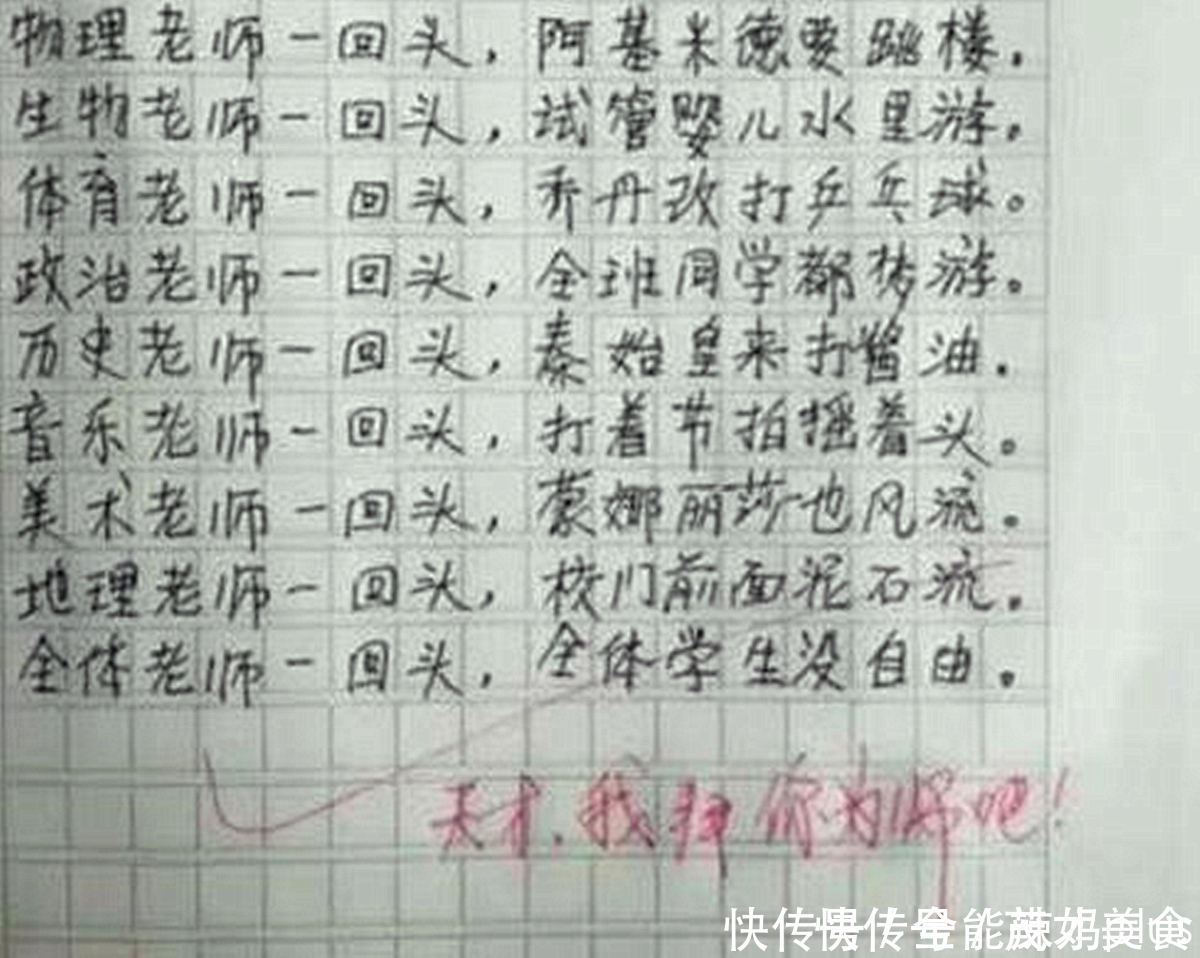 物理老师一回头，阿基米德要跳楼。
生物老师一回头，试管婴儿水里游。
体育老师一回头，乔丹改打乒乓球。
政治老师一回头，全班同学都梦游。
历史老师一回头，秦始皇来打酱油。
音乐老师一回头，打着节拍摇着头。
美术老师一回头，蒙娜丽莎也风流。
地理老师一回头，校门前面泥石流。
全体老师一回头，全体学生没自由。
天才，我拜你为师吧！
快传号